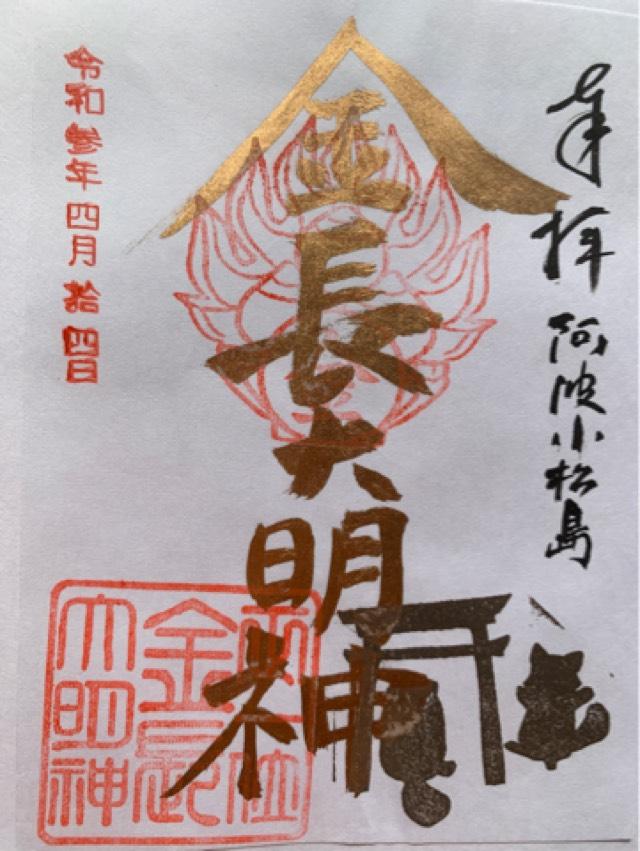 奉拝 阿波小松島
金長大明神
令和参年四月拾四日
正一位
金長
大明神